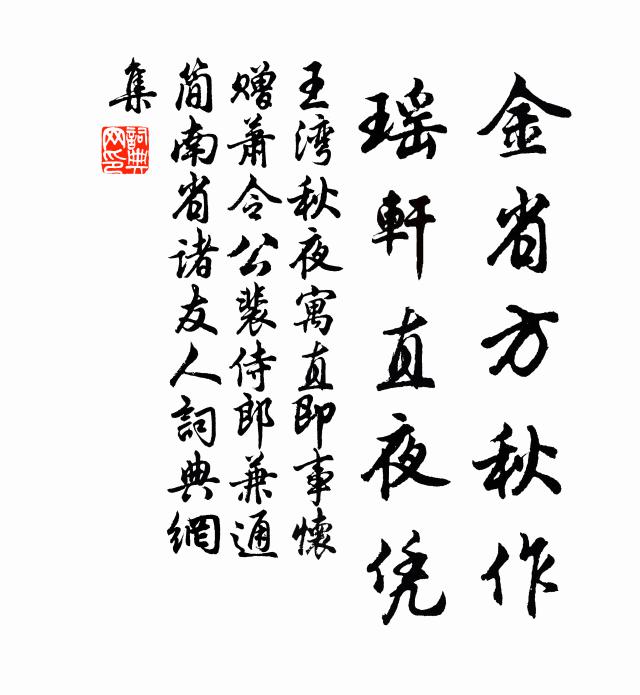 金省方秋作
瑶軒直夜凭
王湾秋夜寓直即事懷
赠蕭令公裴侍郎兼通
简南省诸友人詞典網
集
詞典
网印